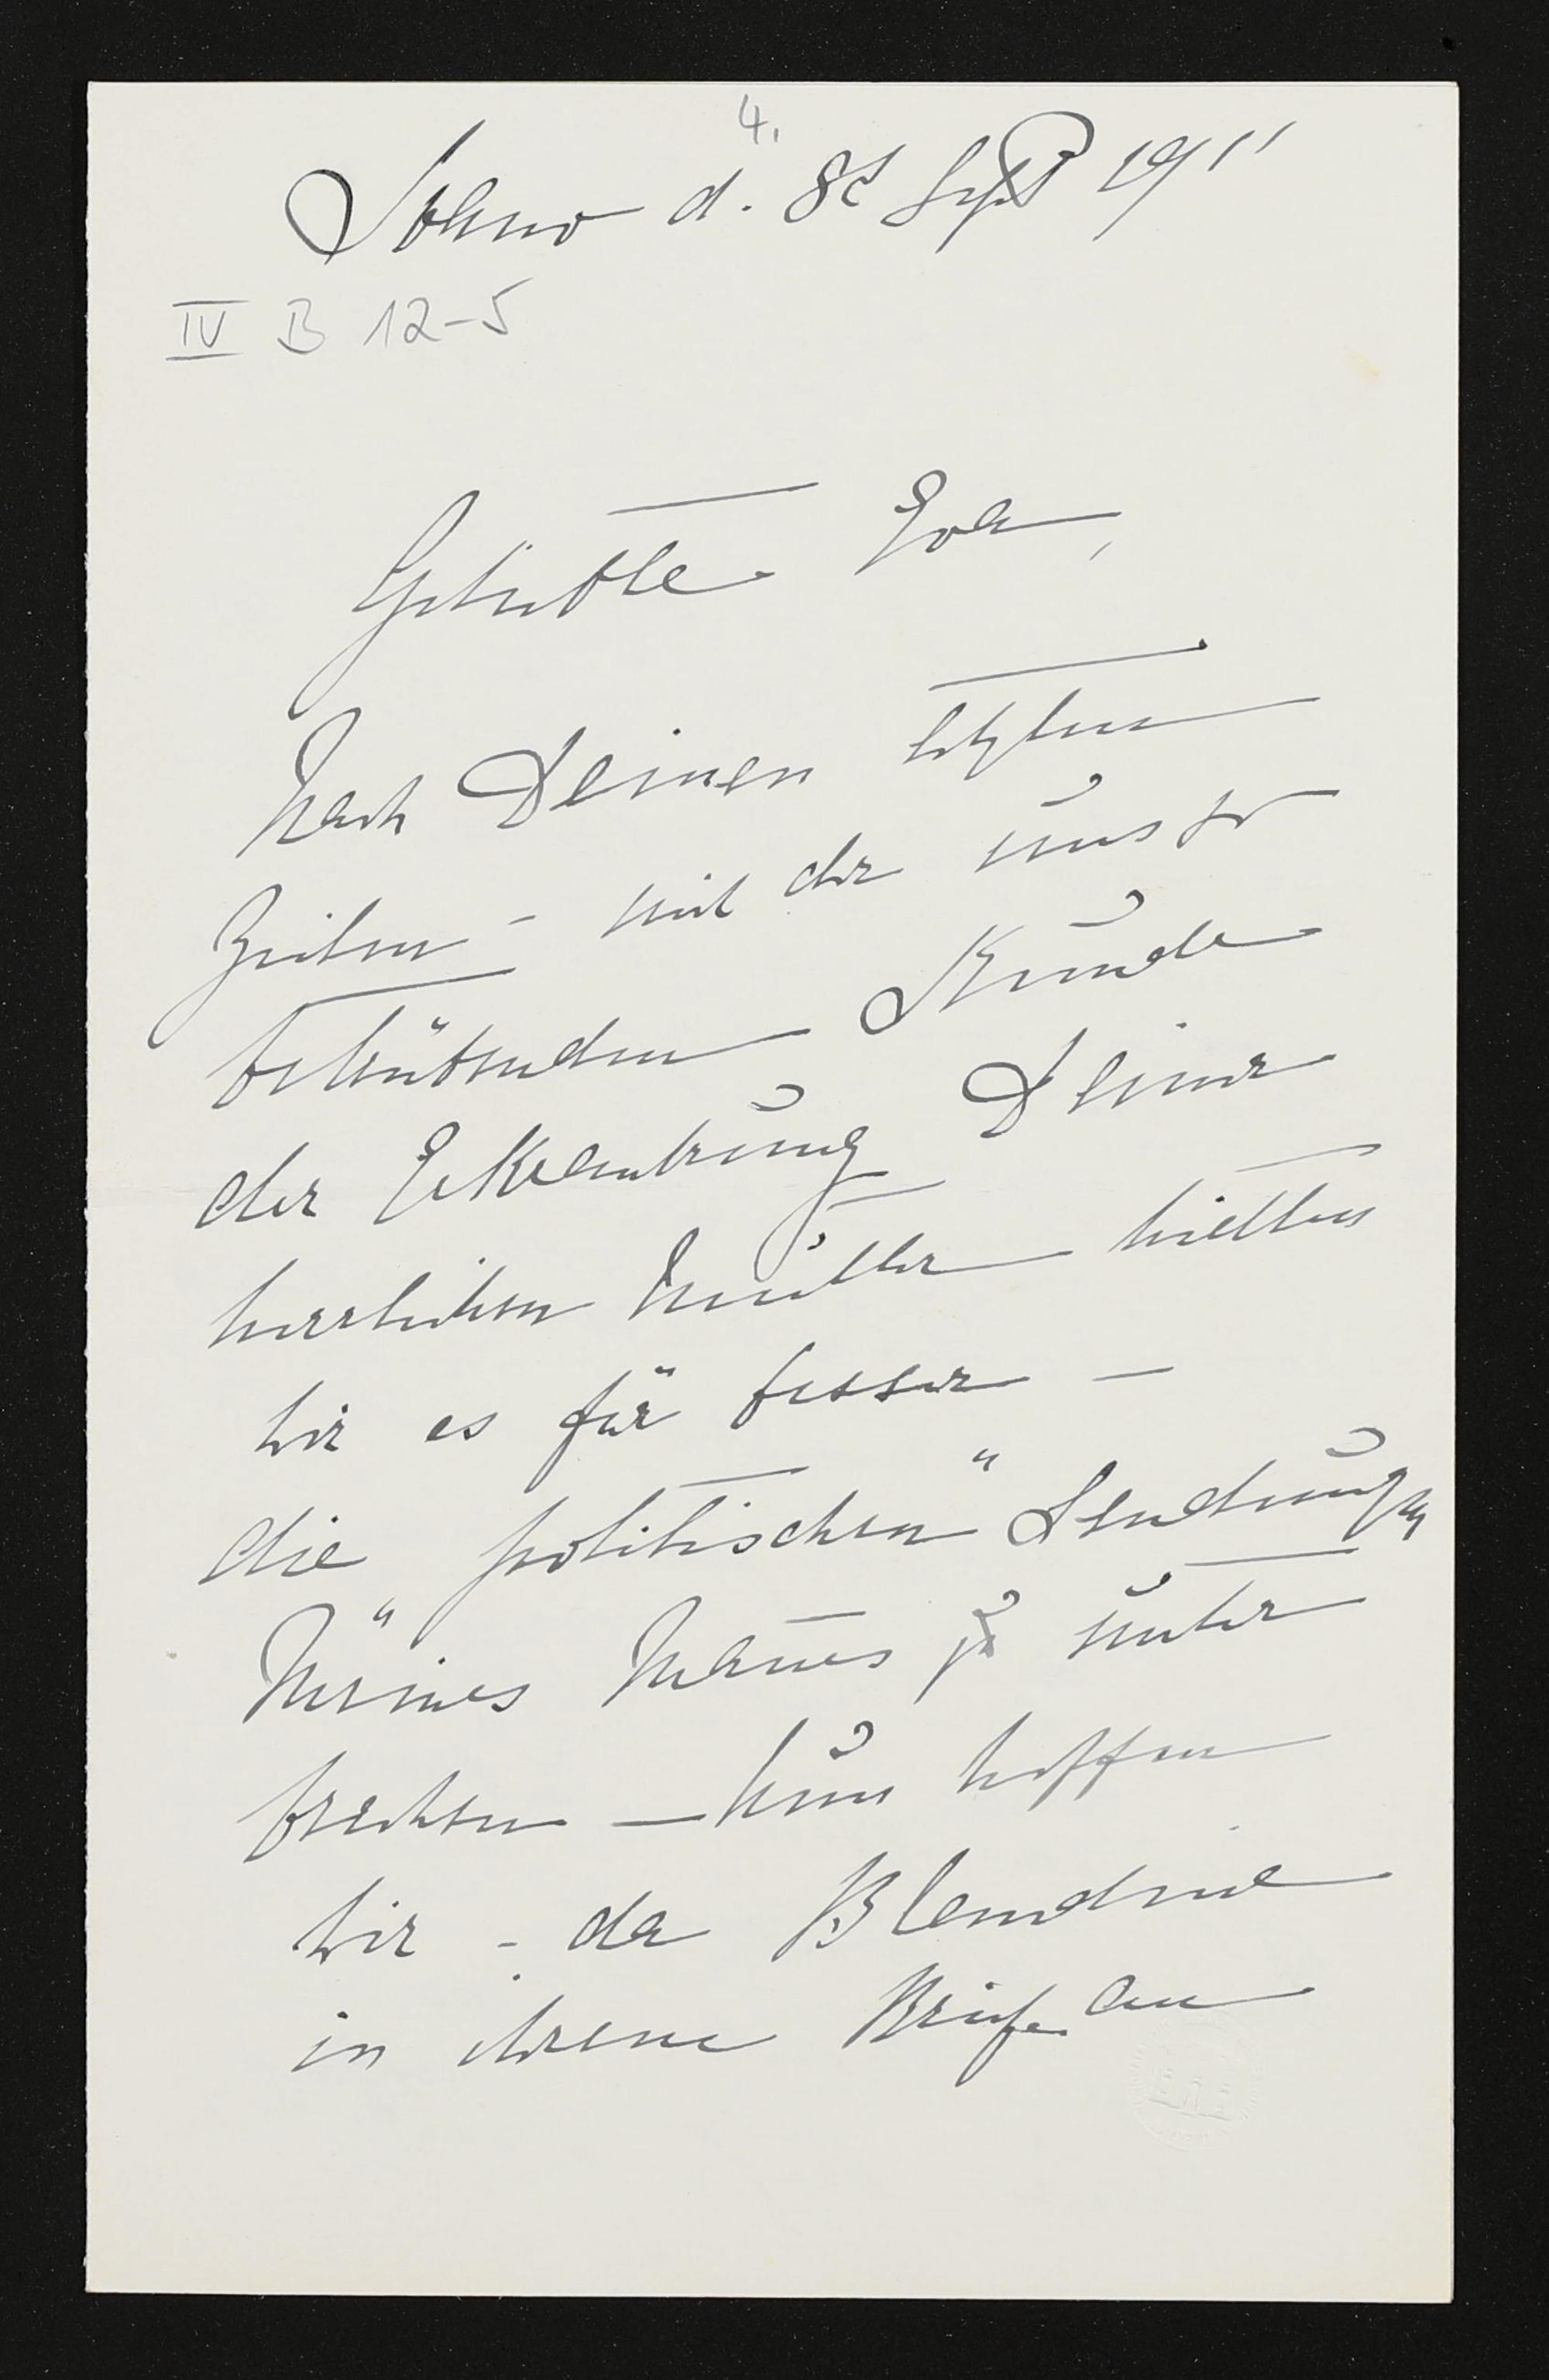 4.
d. 8t Sept 1911
IV B 12-5
Geliebte Eva,
Nach Deinen letzten
Zeilen – mit der uns so
betrübenden Kunde
der Erkrankung Deiner
herrlichen Mutter hielten
wir es für besser –
die politischen "Sendungen
" Meines Mannes zu unter
brechen – Nun hoffen
wir – da Blandine
in ihrem Briefe an